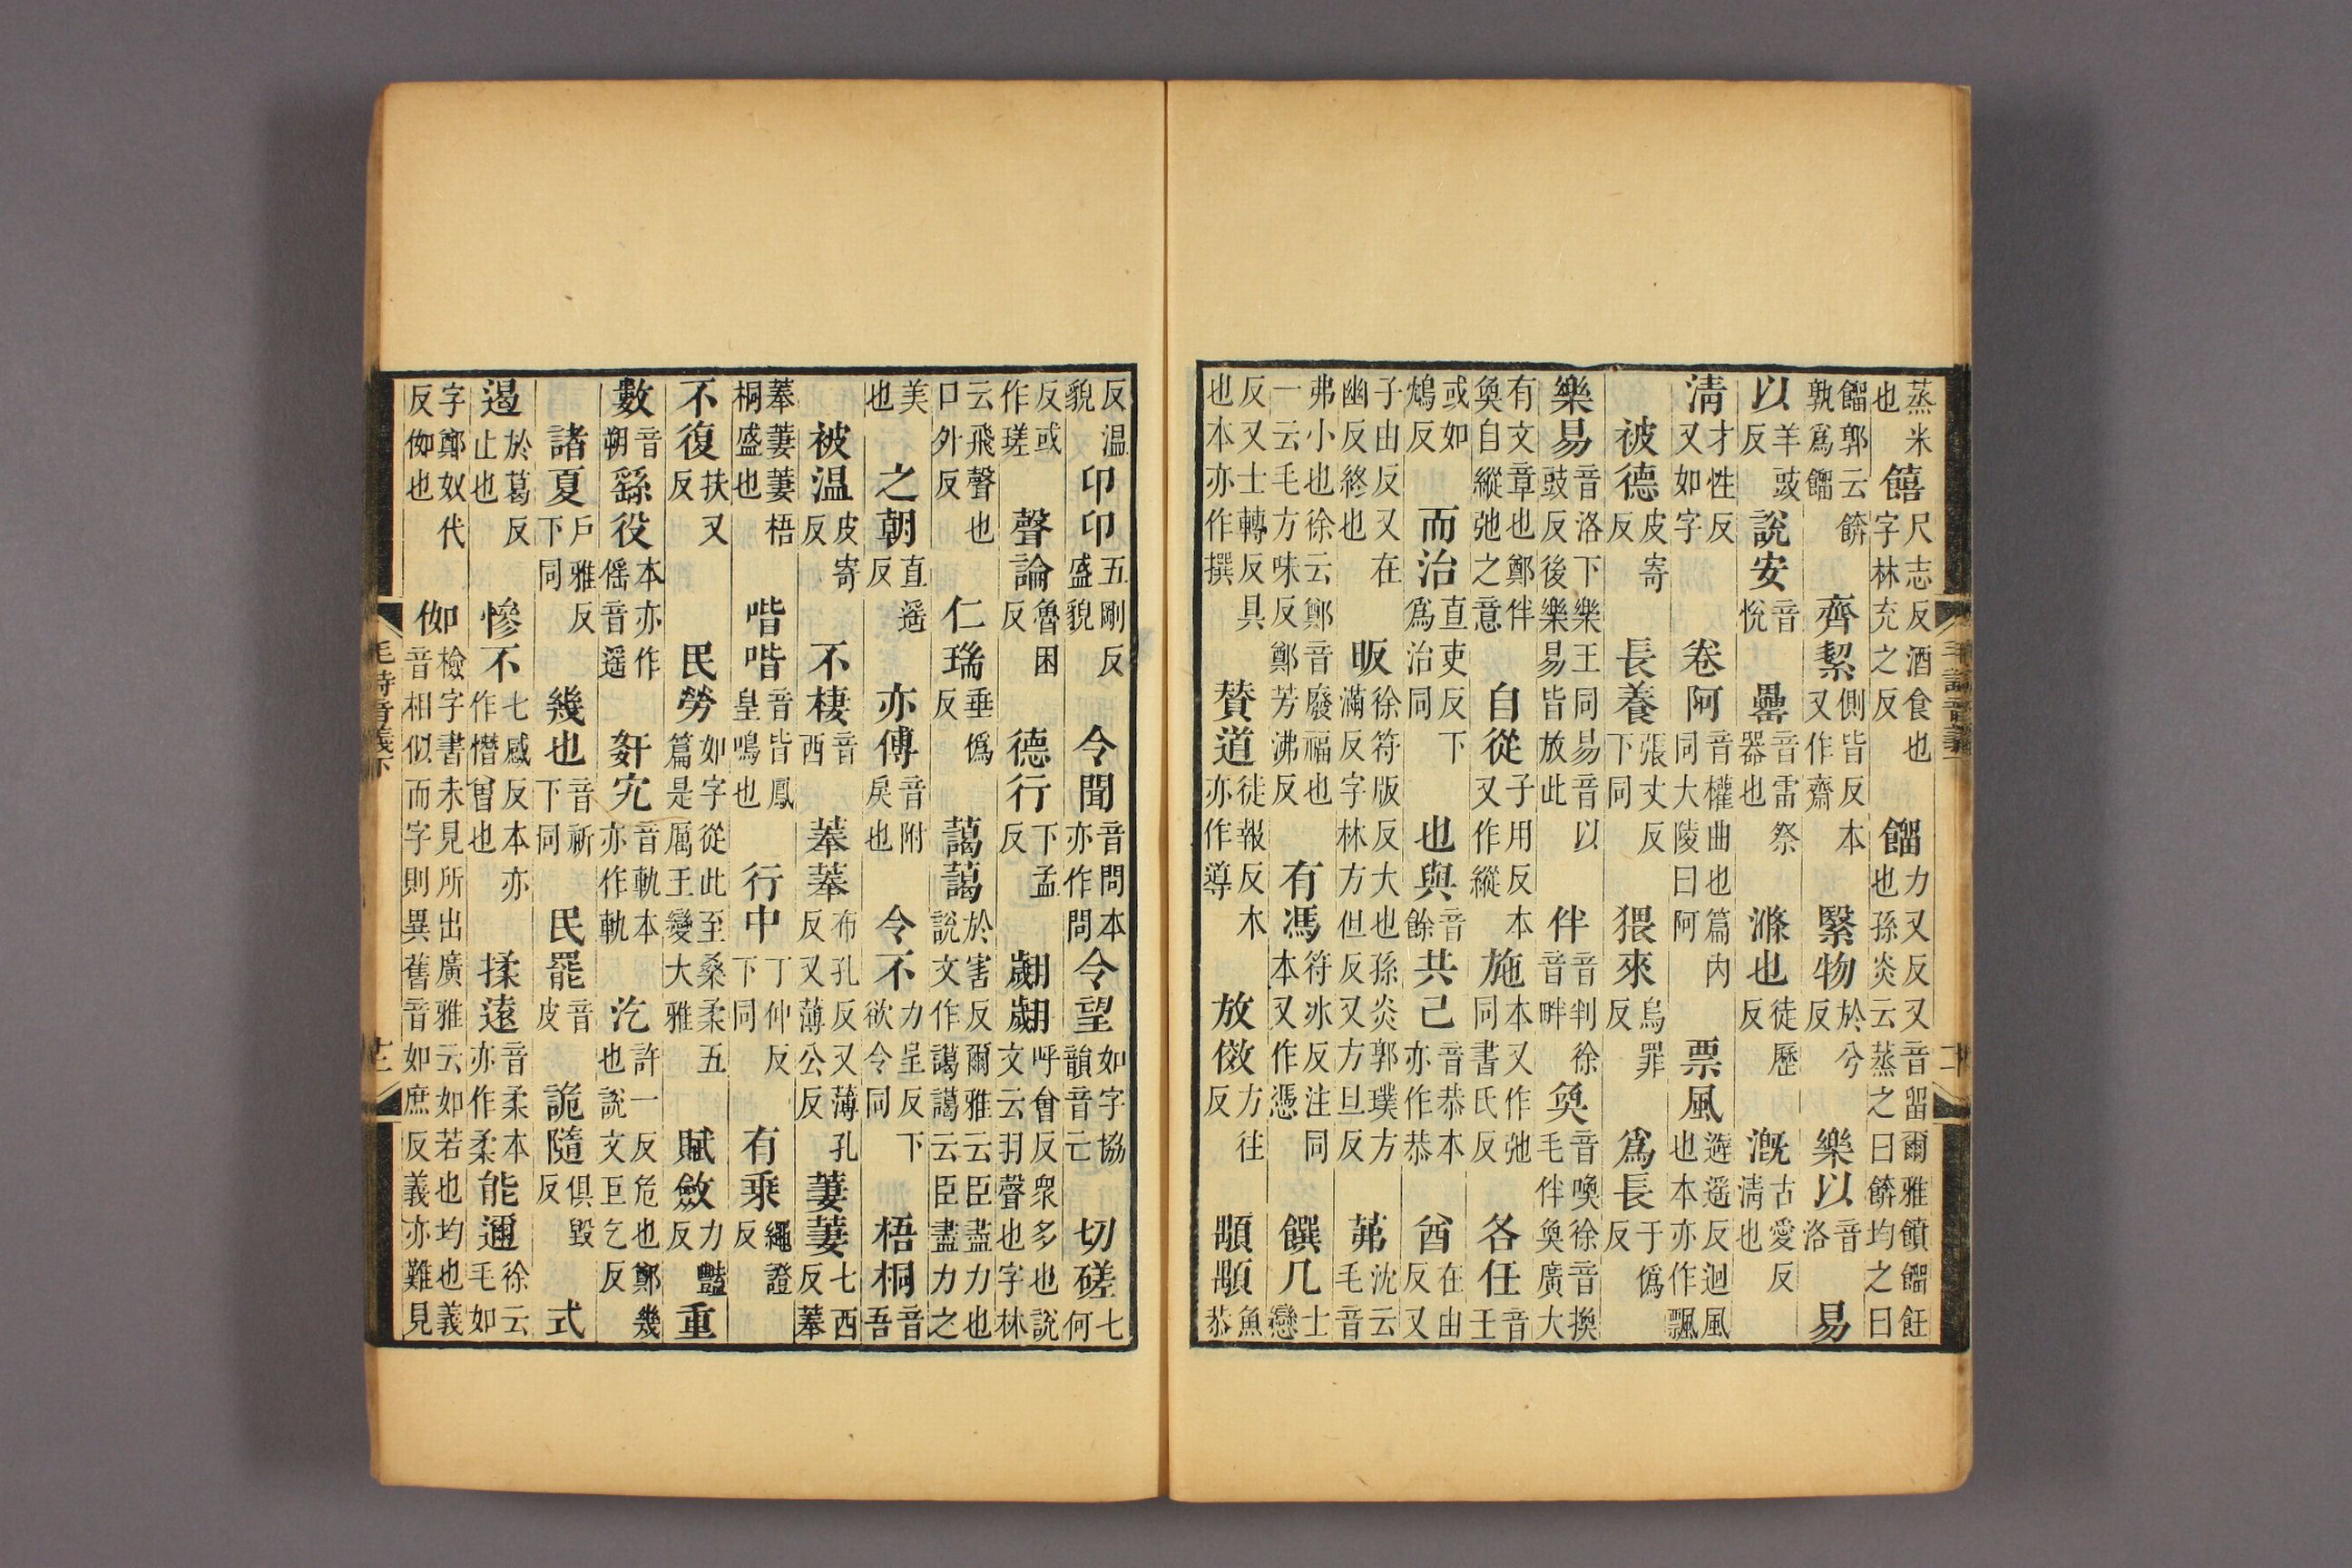 蒸米也饎尺志反酒食也字林充之反餾力又反又音畱爾雅饙餾飪也孫炎云蒸之曰餴均之曰
餾郭云餴孰爲餾齊絜側皆反本又作齋繄物於兮反樂以音洛易
以羊豉反說安音悅罍音雷祭器也滌也徒歷反漑古愛反清也
清才性反又如字卷阿音權曲也篇內同大陵曰阿票風避遥反迴風也本亦作飄
被德皮寄反長養張丈反下同猥來烏罪反爲長于僞反
樂易音洛下樂王同易音以豉反後樂易皆放此伴音判徐音畔奐音喚徐音換毛伴奐廣大
有文章也鄭伴奐自縱弛之意自從子用反本又作縱施本又作弛同書氏反各任音王
或如鴆反而治直吏反下爲治同也與音餘共己音恭本亦作恭酋在由反又
子由反又在幽反終也昄徐符版反大也孫炎郭璞方滿反字林方但反又方旦反茀沈云毛音
弗小也徐云鄭音廢福也一云毛方味反鄭芳沸反有馮符冰反注同本又作憑饌几士戀
反又士轉反具也本亦作撰贊道徒報反本亦作導放傚方往反顒顒魚恭
毛詩音義下
反温貌卬卬五剛反盛貌令聞音問本亦作問令望如字協韻音亡切磋七何
反或作瑳聲論魯困反德行下孟反翽翽呼會反衆多也說文云羽聲也字林
云飛聲也口外反仁瑞垂僞反藹藹於害反爾雅云臣盡力也說文作譪譪云臣盡力之
美也之朝直遥反亦傅音附戾也令不力呈反下欲令同梧桐音吾
被温皮寄反不棲音西菶菶布孔反又薄孔反又薄公反萋萋七西反菶
菶萋萋梧桐盛也喈喈音皆鳳皇鳴也行中丁仲反下同有乘繩證反
不復扶又反民勞如字從此至桑柔五篇是厲王變大雅賦斂力豔反重
數音朔繇役本亦作傜音遥姧宄音軌本亦作軌汔許一反危也鄭幾也說文巨乞反
諸夏戶雅反下同幾也音祈下同民罷音皮詭隨俱毀反式
遏於葛反止也慘不七感反本亦作憯曾也揉遠音柔本亦作柔能邇徐云毛如
字鄭奴代反侞也侞檢字書未見所出廣雅云如若也均也義音相似而字則異舊音如庶反義亦難見
毛詩音義下